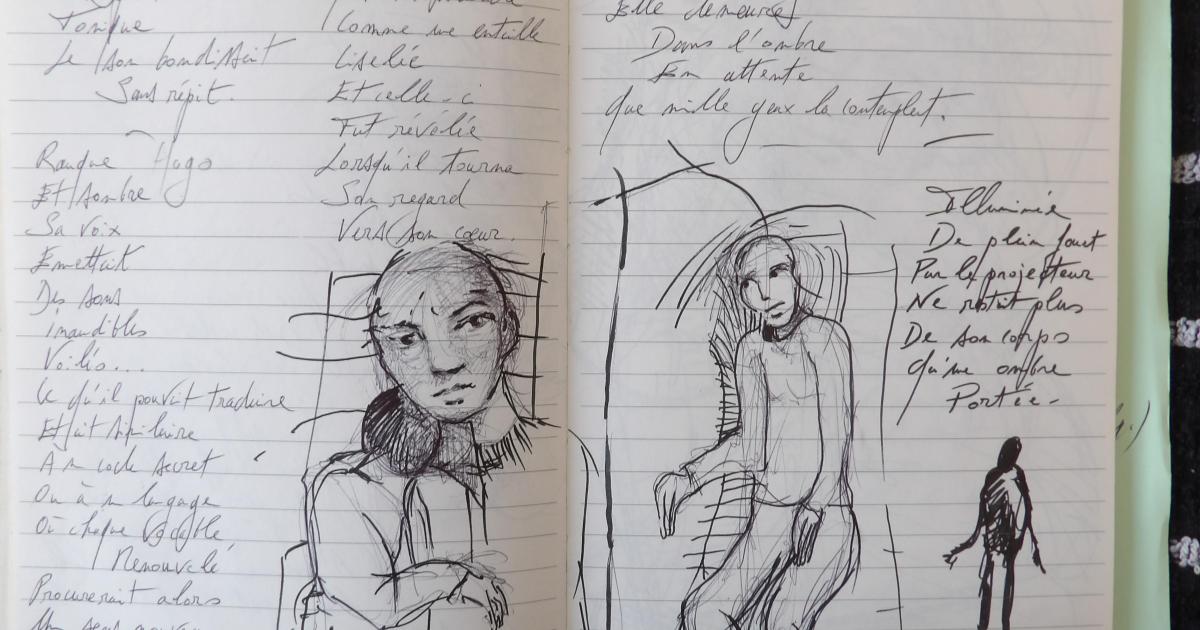 Tonique
Le son bondissait
Sans répit.
Rauque Hugo
Et sombre
Sa voix
Emettait
Des sons
inaudibles
Voilés...
Ce qu'il pouvait traduire
Etait similaire
A un code secret
Ou à un langage
Où chaque Vocable
Renouvelé
Procurerait alors
Un sens nouveau
Comme une entaille
Ciselée
Et celle-ci
Fut révélée
Lorsqu'il tourna
Son regard
Vers son cœur.
Elle demeure
Dans l'ombre
En attente
Que mille yeux la contemplent.
Illuminée
De plein fouet
Par le projecteur
Ne restait plus
De son corps
Qu'une ombre
Portée-